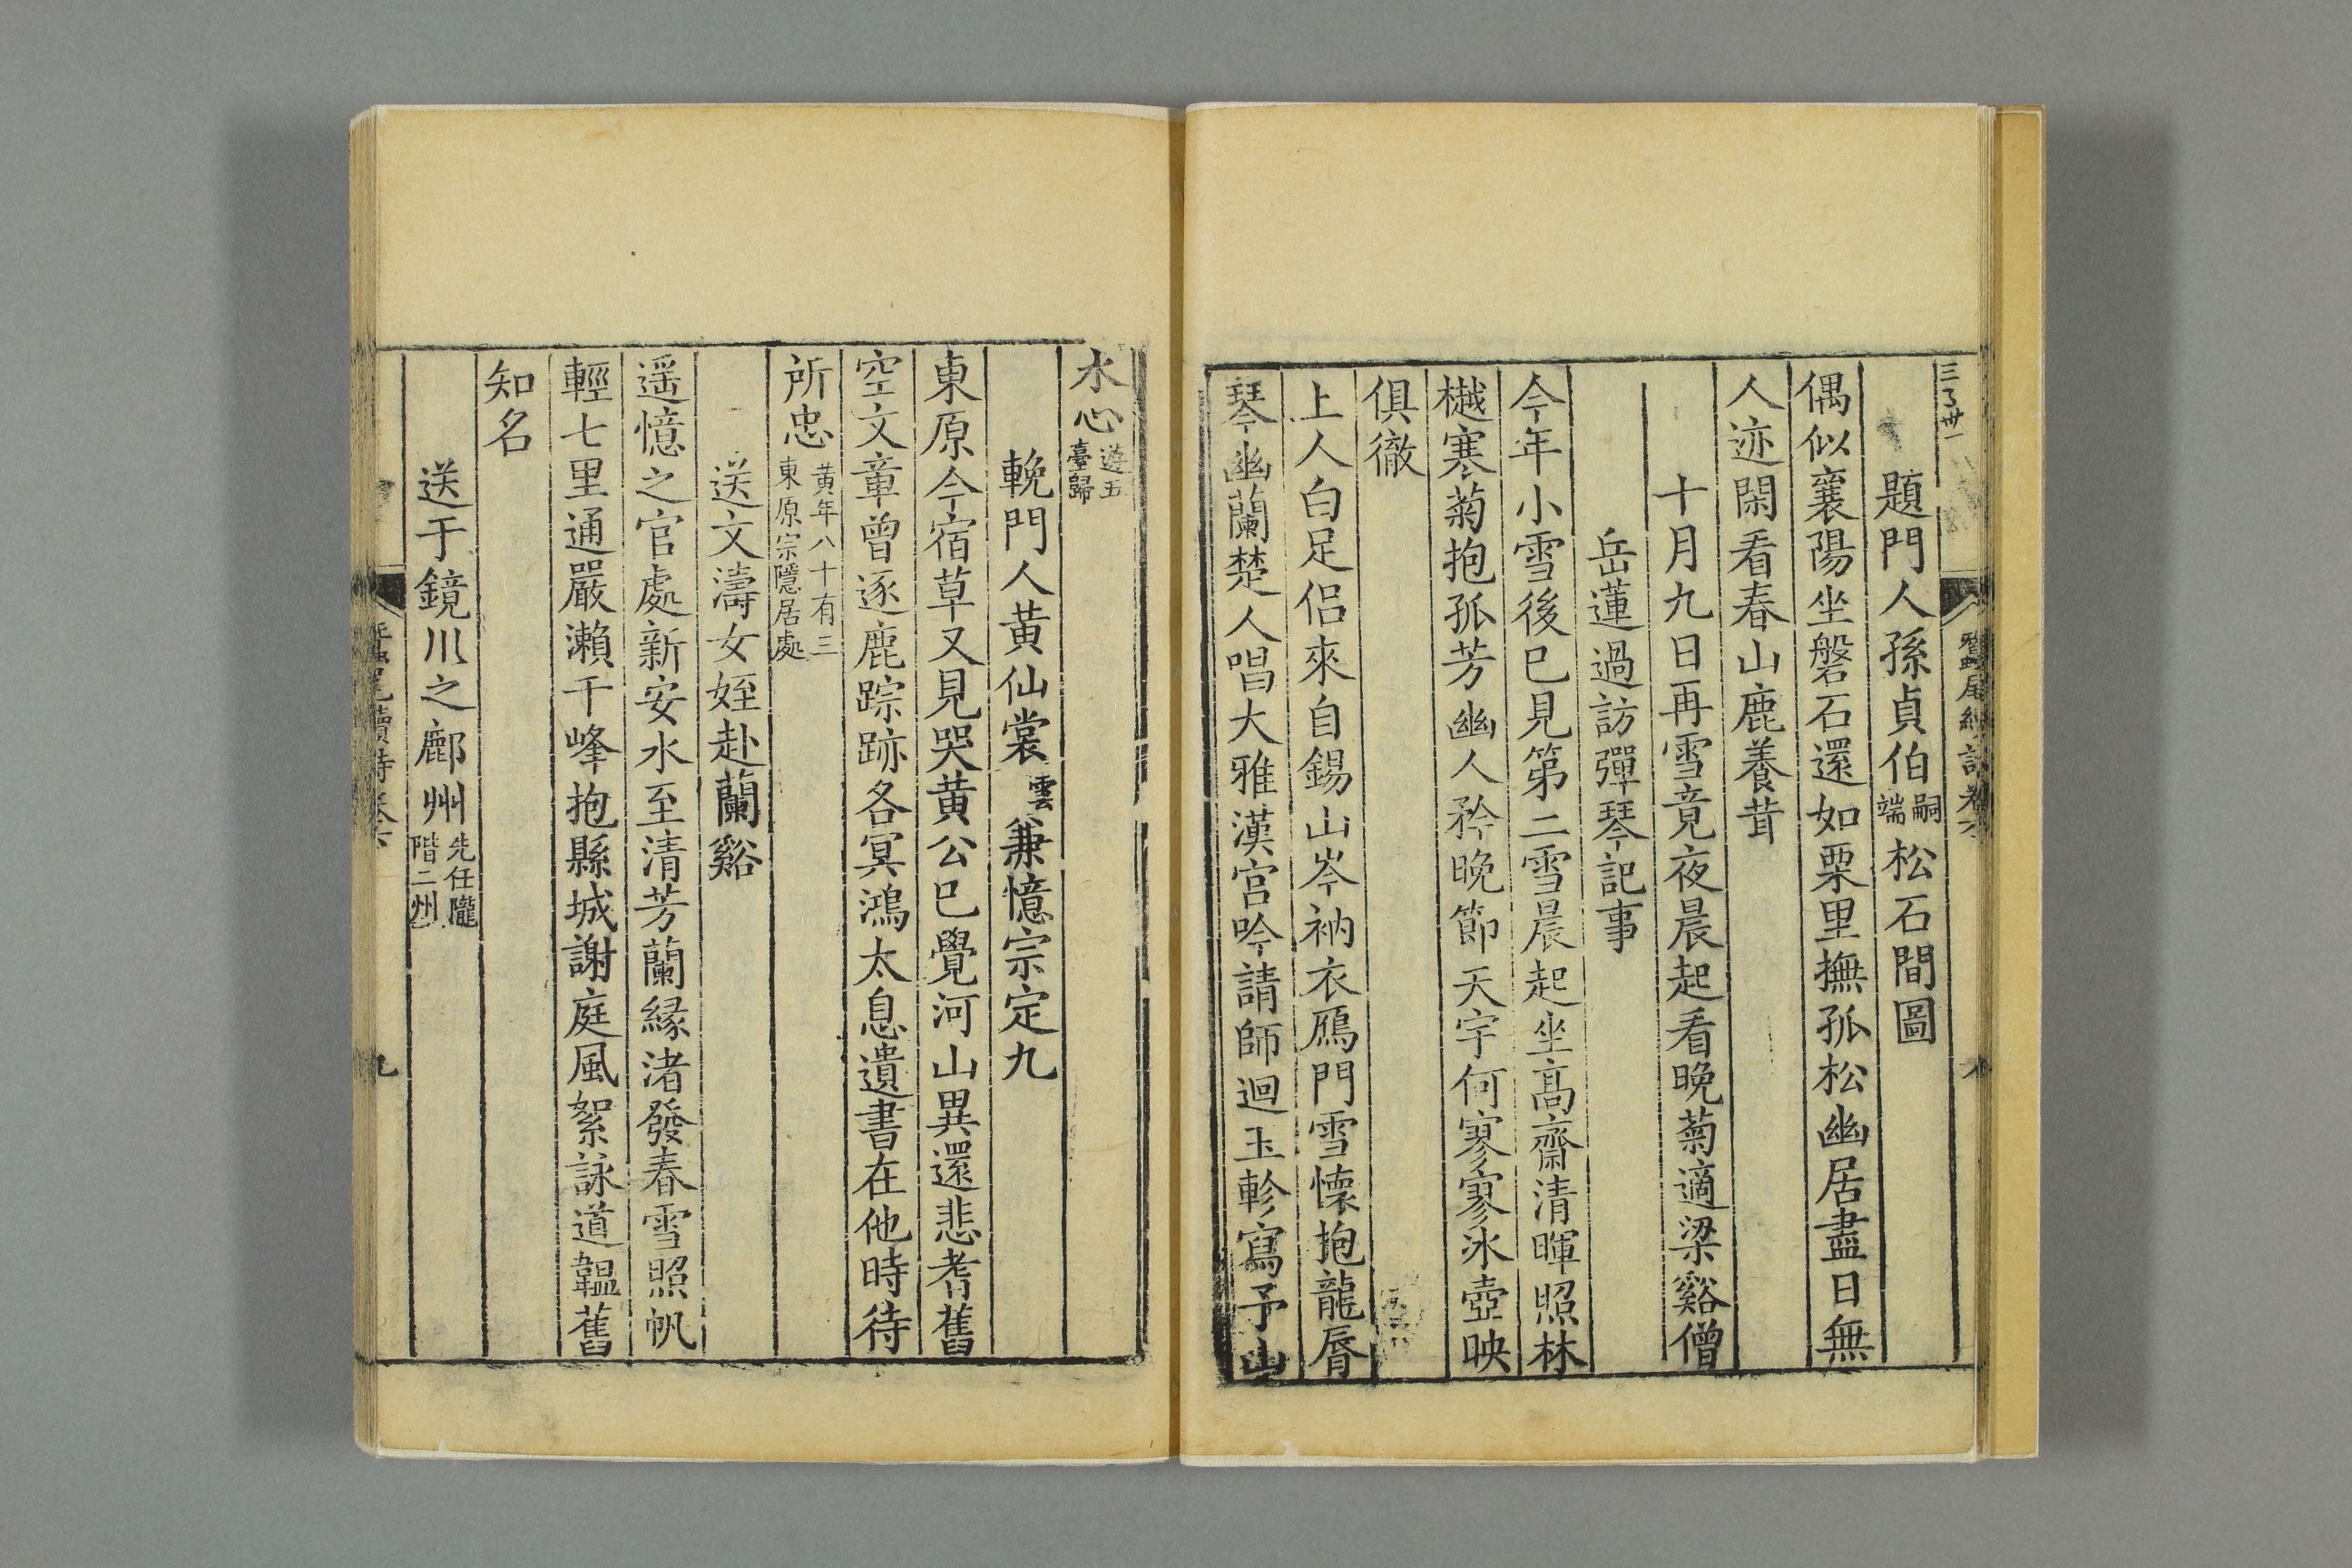 題門人孫貞伯嗣端松石間圖
偶似襄陽坐磐石還如栗里撫孤松幽居盡日無
人迹閑看春山鹿養茸
十月九日再雪竟夜晨起看晚菊適梁谿僧
岳蓮過訪彈琴記事
今年小雪後已見第二雪晨起坐高齋清暉照林
樾寒菊抱孤芳幽人矜晚節天宇何寥寥氷壺映
俱徹
上人白足侣來自錫山岑衲衣鴈門雪懐抱龍唇
琴幽蘭楚人唱大雅漢宫吟請師迴玉軫寫予山
水心遊五臺歸
輓門人黄仙裳雲兼憶宗定九
東原今宿草又見哭黄公已覺河山異還悲耆舊
空文章曾逐鹿踪跡各冥鴻太息遺書在他時待
所忠黄年八十有三東原宗隱居處
送文濤女姪赴蘭谿
遥憶之官處新安水至清芳蘭緣渚發春雪照帆
輕七里通嚴瀨千峰抱縣城謝庭風絮詠道韞舊
知名
送于鏡川之鄜州先任隴階二州
蠶尾續詩卷六
九